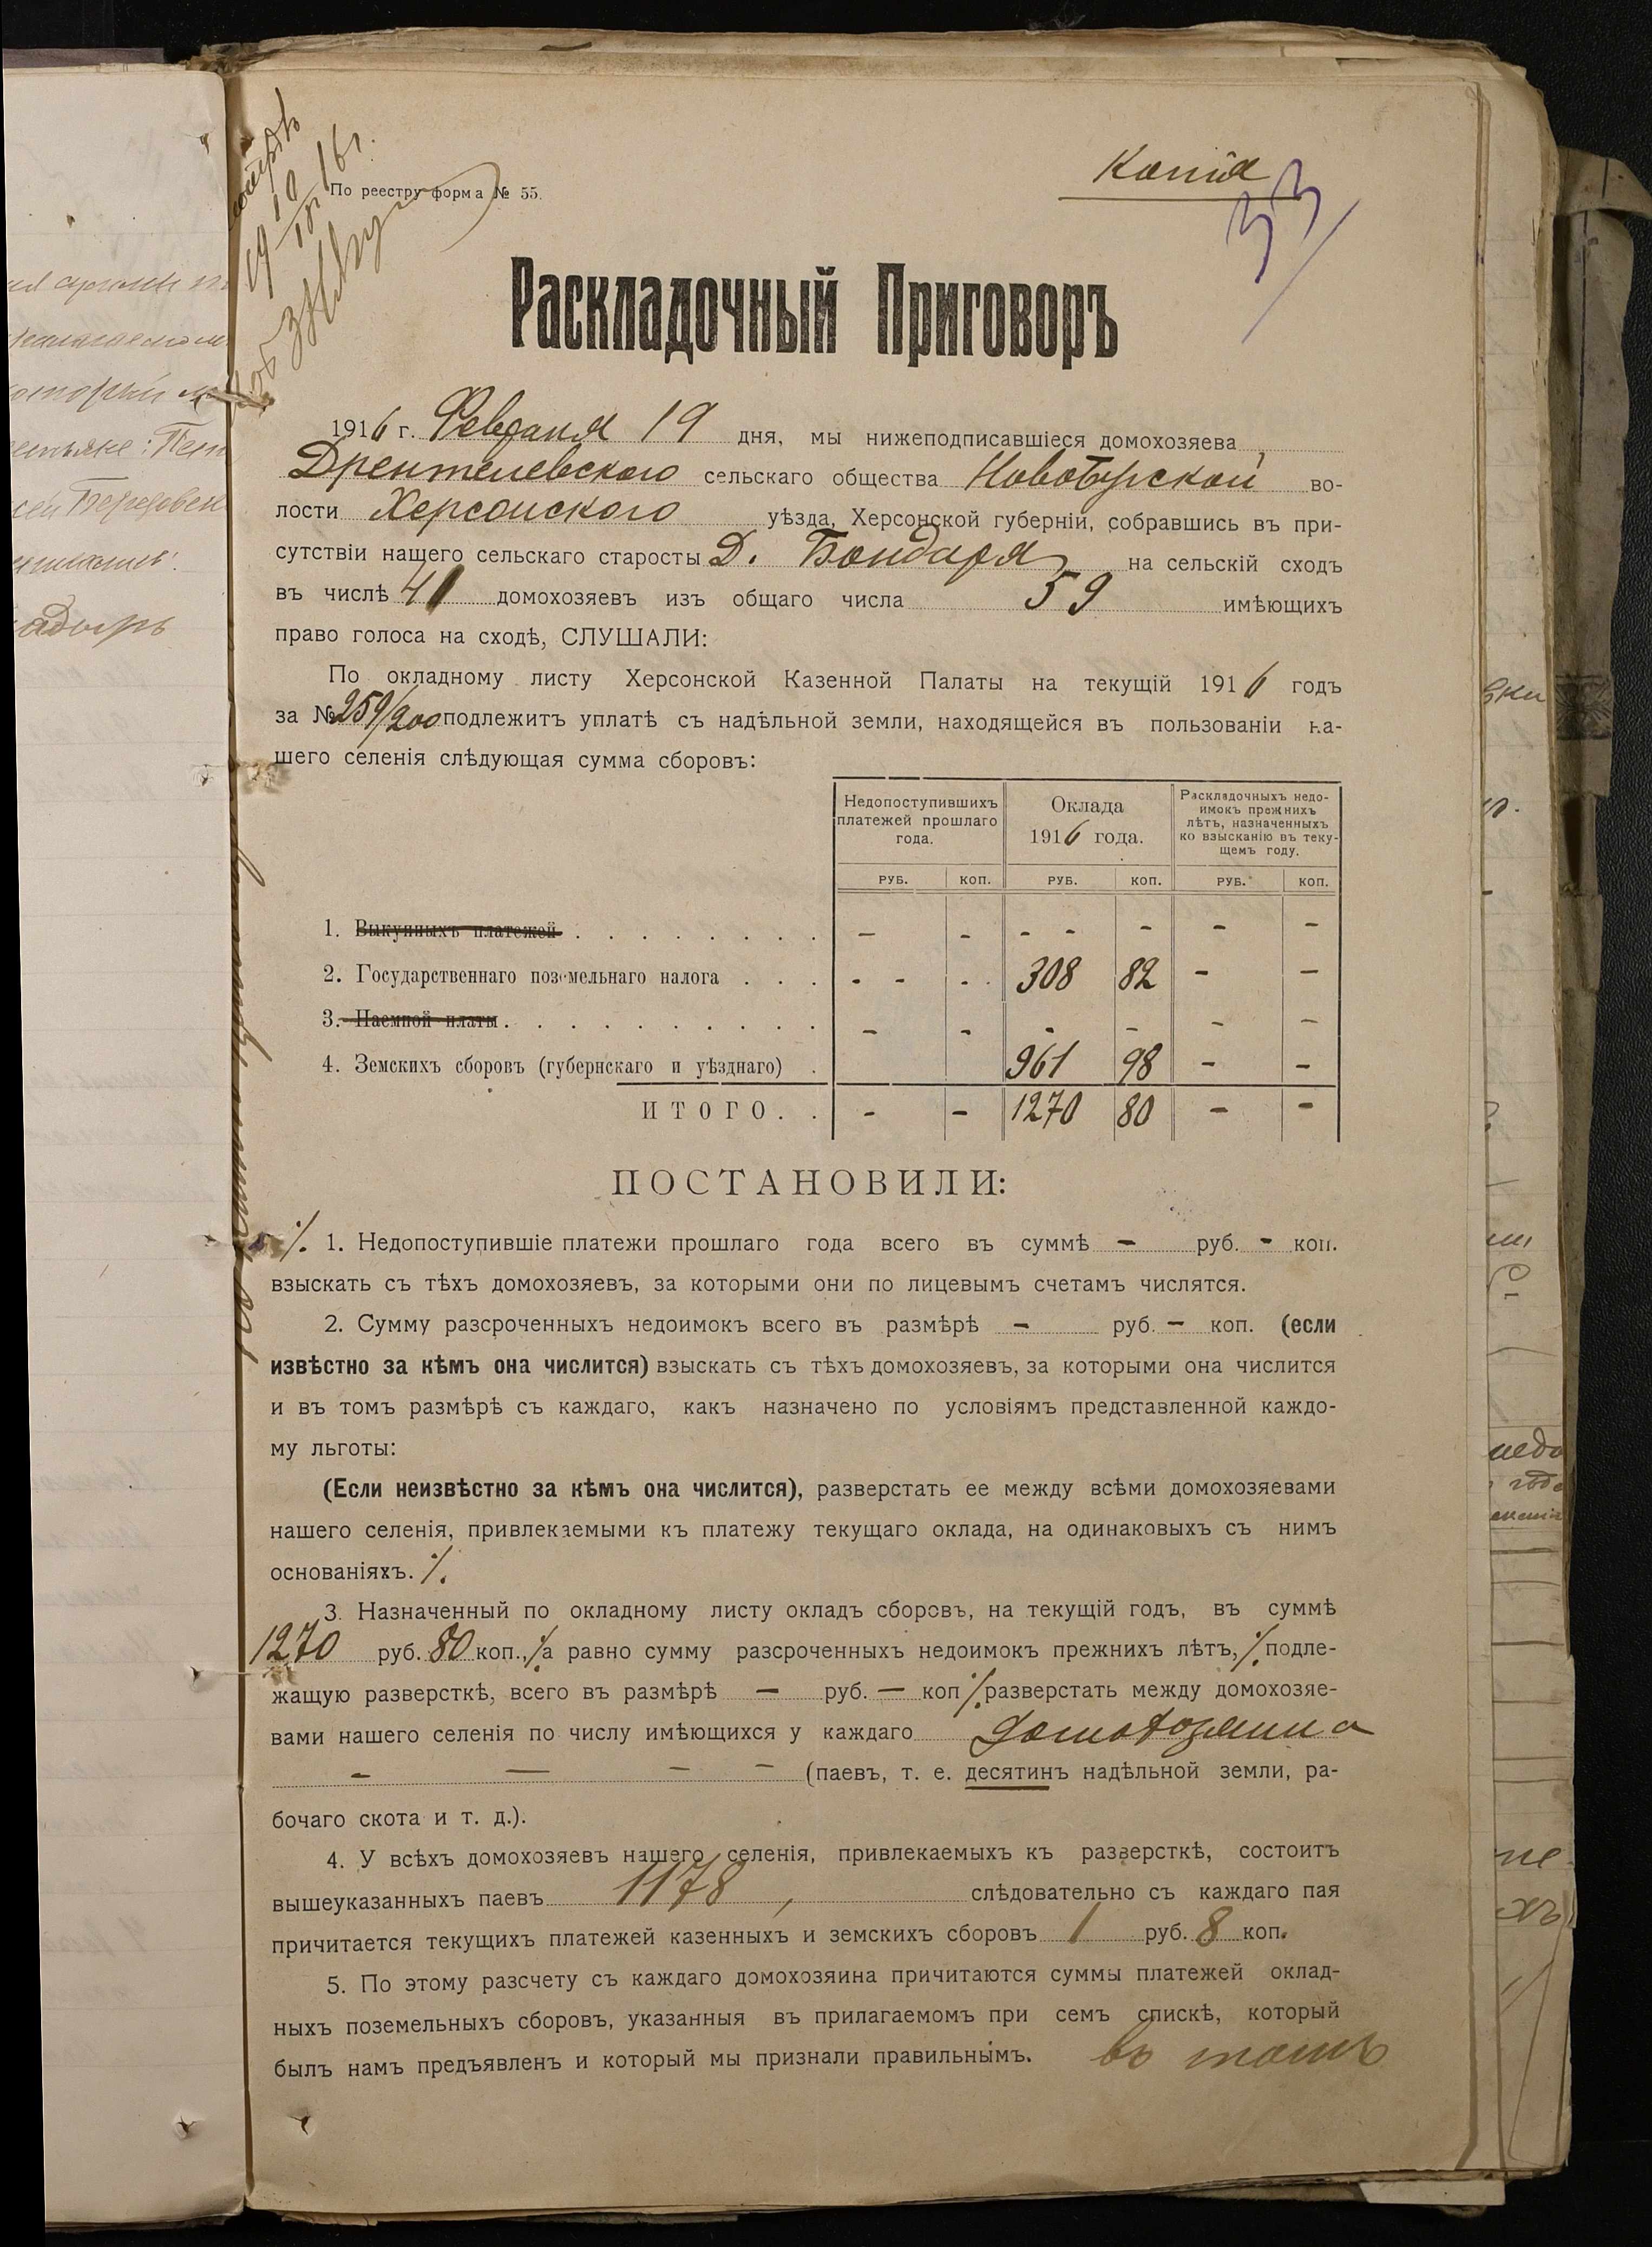 Копія
33
По реестру форма № 55.
Раскладочный Приговоръ
1916 г. Февраля 19 дня, мы нижеподписавшіеся домохозяева,
Дрентелевского сельскаго общества Новобугской во-
лости Херсонского уѣзда, Херсонской губерніи, собравшись въ при-
сутствіи нащего сельскаго старосты Д. Бондаря на сельскій сходъ
въ числѣ 40 домохозяевъ изъ общаго числа 59 имѣющихъ
право голоса на сходѣ, СЛУШАЛИ:
По окладному листу Херсонской Казенной Палаты на текущій 1916 годъ
за № 259/200 подлежитъ уплатѣ съ надѣльной земли, находящейся въ пользованіи на-
шего селенія слѣдующая сумма сборовъ:
Недопоступившихъ платежей прошлаго года. Оклада 1916 года. Раскладочныхъ недо-имокъ прежнихъ лѣтъ, назначенныхъ ко взысканію въ теку-щемъ году.
РУБ. КОП. РУБ. КОП. РУБ. КОП.
1. Выкупныхъ платежей . . . . . . . . — - - - - - -
2. Государственнаго поземельнаго налога . . . - - - - 308 82 - -
3. Наемной платы . . . . . . . . . . - - - - - -
4. Земскихъ сборовъ (губернскаго и уѣзднаго) . 961 98 - -
ИТОГО . . - - 1270 80 - -
ПОСТАНОВИЛИ:
·/. 1. Недопоступившіе платежи прошлаго года всего въ суммѣ — руб. - коп.
взыскать съ тѣхъ домохозяевъ, за которыми они по лицевымъ счетамъ числятся.
2. Сумму разсроченныхъ недоимокъ всего въ размѣрѣ — руб. — коп. (если
извѣстно за кѣмъ она числится) взыскать съ тѣхъ домохозяевъ, за которыми она числится
и въ томъ размѣрѣ съ каждаго, какъ назначено по условіямъ представленной каждо-
му льготы:
(Если неизвѣстно за кѣмъ она числится), разверстать ее между всѣми домохозяевами
нашего селенія, привлекаемыми къ платежу текущаго оклада, на одинаковыхъ съ нимъ
основаніяхъ. ·/.
3. Назначенный по окладному листу окладъ сборовъ, на текущій годъ, въ суммѣ
1270 руб. 80 коп., ·/. а равно сумму разсроченныхъ недоимокъ прежнихъ лѣтъ, ·/. подле-
жащую разверсткѣ, всего въ размѣрѣ — руб. — коп ·/. разверстать между домохозяе-
вами нашего селенія по числу имѣющихся у каждаго домохозяина
— — — — (паевъ, т. е. десятинъ надѣльной земли, ра-
бочаго скота и т. д.).
4. У всѣхъ домохозяевъ нашего селенія, привлекаемыхъ къ разверсткѣ, состоитъ
вышеуказанныхъ паевъ 1178, слѣдовательно съ каждаго пая
причитается текущихъ платежей казенныхъ и земскихъ сборовъ 1 руб. 8 коп.
5. По этому разсчету съ каждаго домохозяина причитаются суммы платежей оклад-
ныхъ поземельныхъ сборовъ, указанныя въ прилагаемомъ при семъ спискѣ, который
былъ намъ предъявленъ и который мы признали правильнымъ. въ томъ